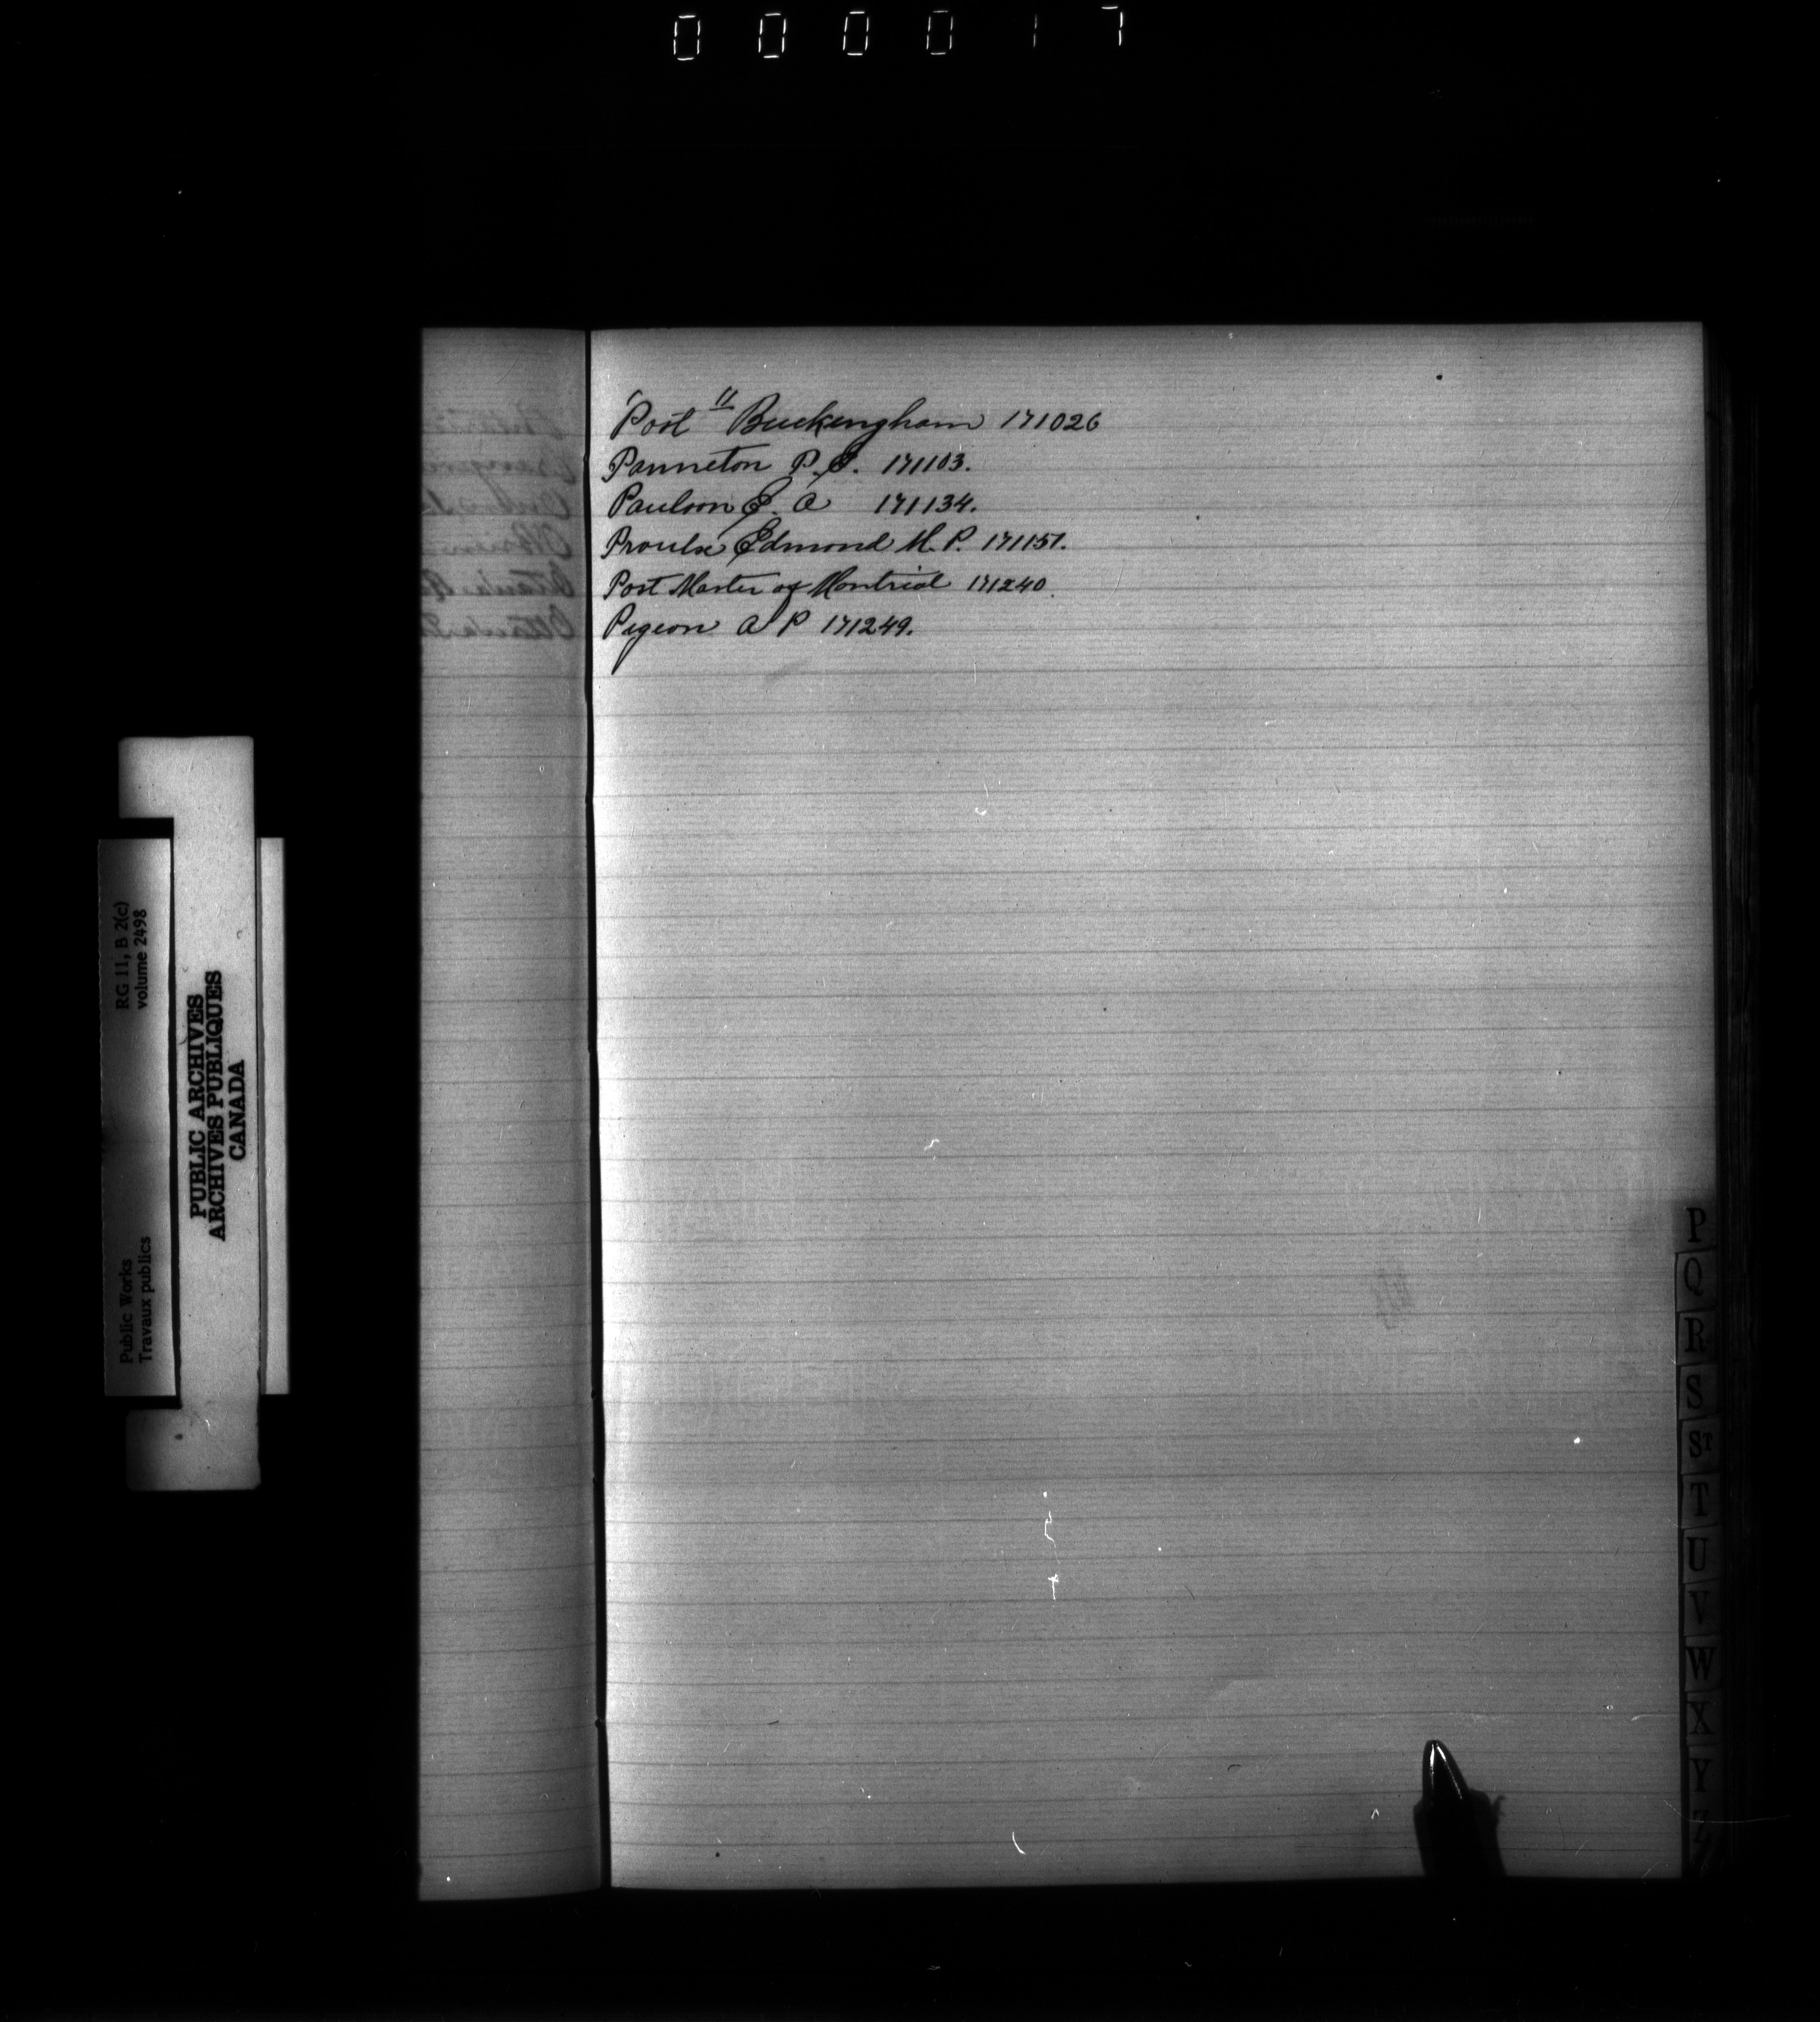 000017
Post " Buckengham 171026
Panneton P. E. 171103.
Paulson E. A 171134.
Proulx Edmond M. P. 171151.
Post Master of Montreal 171240.
Pigeon A P 171249.
RG 11, B 2(c)
volume 2498
PUBLIC ARCHIVES
ARCHIVES PUBLIQUES
CANADA
Public Works
Travaux publics
P
Q
R
S
ST
T
U
V
W
X
Y
Z